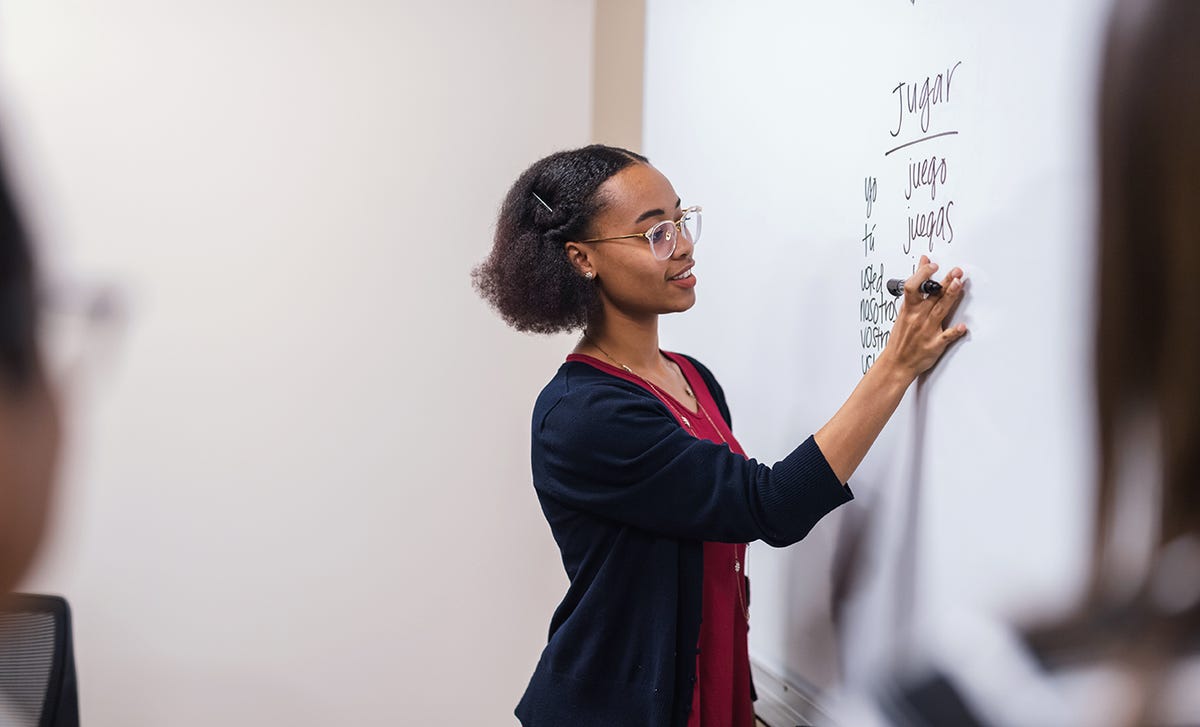 Jugar
yo juego
tú juegas
usted
nosotros